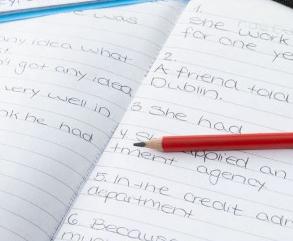 e was
any idea what
't got any idea
very well in
nk he had
1.
She work
for one ye
2.
A friend told
Dublin.
3. She had
4. applied an
tment agency
5. In the credit adm
department
6. Because